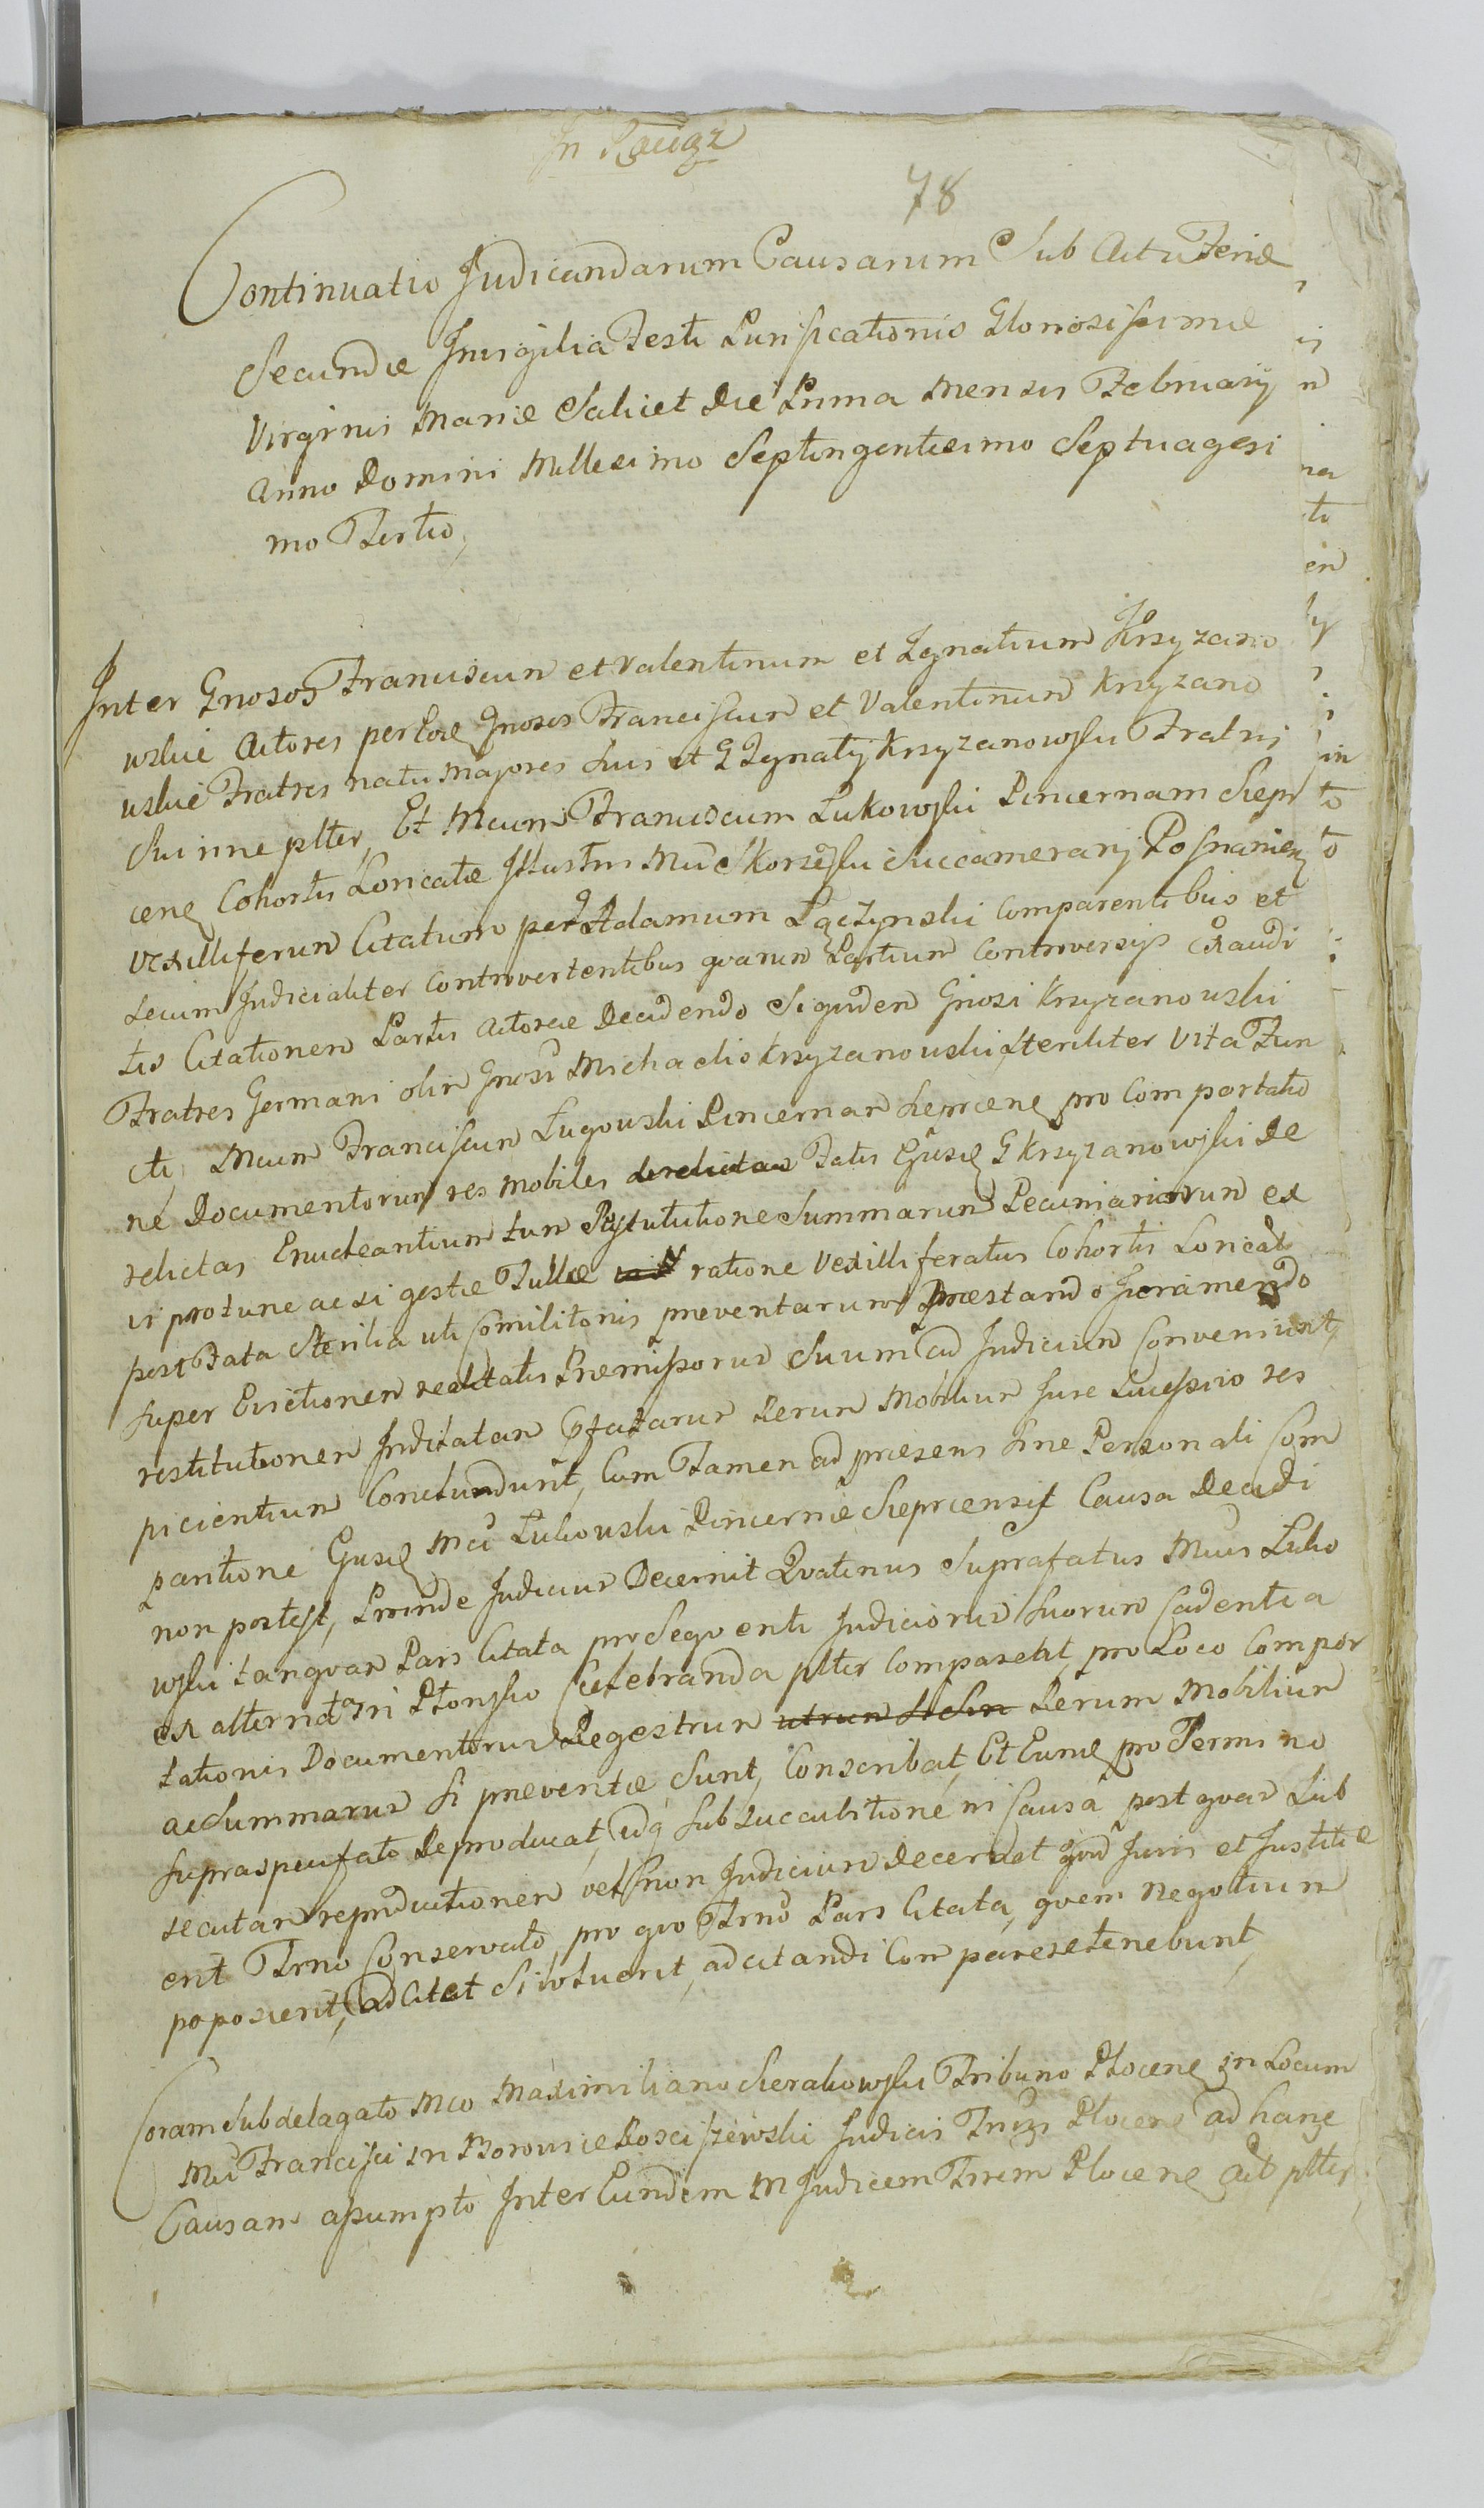 In Raciąz
78
Continuatio Judicandarum Causarum Sub Actu Feriæ
Secundæ Invigilia Festi Purificationis Gloriosissimæ
Virginis Mariæ Scilicet Die Prima Mensis February
Anno Domini Millesimo Septingentesimo Septuagesi
mo Tertio,
Inter Gnosos Franciscum et Valentinum et Ignatium Krzyzano
wskie Actores Gnosos Franciscum et Valentinum Krzyzano
wskie Fratres natu Majores suis et G Ignaty Krzyzanowski Fratris
Sui nne plter, Et Mcum Franciscum Lukowski Pincernam Siepr
cenę Cohortis Loricatæ Illustris Mci Skorzęski Succamerarij Posnanien
Vexilliferum Citatum per Adamum Łączynski Comparentibus et
secum Judicialiter Controvertentibus qvarum Partium Controversijs Exaudi
tis Citationem Partis Actoreæ Decidendo Siquidem Gnosi Krzyzanowski
Fratres Germani olim Gnosi Michaelis Krzyzanowski steriliter Vita Fun
cti, Mcum Franciscum Lugowski Pincernam Sieprcenę pro Comportatio
ne Documentorum res mobiles derelictas Fatis Ejusdę G Krzyzanowski De
relictas Enucleantium tum Restitutione Summarum Pecuniariorum ex
vi protunc ac si gestæ Tutlæ ratione Vexilliferatus Cohortis Loricat
post Fata Sterilia uti Comilitonis prœventarum Præstando Juramendo
super Evictionem realitatis Præmissorum Suum ad Judicium Conveniunt,
restitutionem Inditatam Pfatarum Rerum Mobilium Jure Successivo res
picientium Concludunt, Cum Tamen ad præsens sine Personali Com
paritione Ejusdę Mci Lukowski Pincernæ Sieprcensis Causa Decidi
non potest, Proinde Judicium Decernit Qvatenus Suprafatus Mcus Luko
wski tanqvam Pars Citata pro Seqventi Judiciorum suorum Cadentia
ex alternata in Płonsko Celebranda plter Compareat, pro Loco Compor
tationis Documentorum Regestrum utrum Rerum Mobilium
ac Summarum si prœventæ Sunt, Conscribat, Et Eumdę pro Termino
supraspecifato Reproducat, idq sub succubitione in Causa post qvam sub
secutam reproductionem vel non Judicium decernet qvid Juris et Justitiæ
erit Trno Conservato, pro qvo Trno Pars Citata, qvem Negotium
poposcerit, adcitet Si voluerit, adcitandi Comparere tenebunt,
Coram Subdelagato Mco Maximiliano Sierakowski Tribuno Plocenę in Locum
Mci Francisci in Borowice Roscizewski Judicis Plocenę ad hanc
Causam assumpto Inter Eundem M Judicem Plocenę Act plter